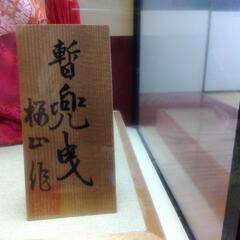 暫兜曳
柳山作